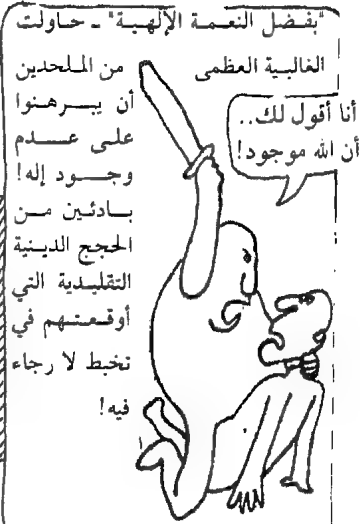 "بفضل النعمة الإلهية" - حاولت
الغالبية العظمى من الملحدين
أن يبرهنوا
على عدم
وجود إله!
بادئين من
الحجج الدينية
التقليدية التي
أوقعتهم في
تخبط لا رجاء
فيه!
أنا أقول لك..
أن الله موجود!